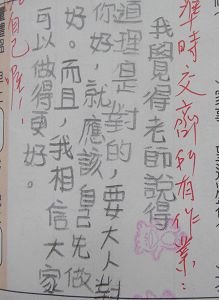 準時交齊所有作業…
我覺得老師說得
道理是對的，要大人對
你好，就應該自己先做
好。而且，我相信大家
可以做得更好。
自己喔!!